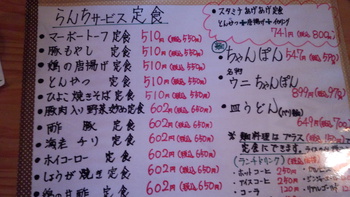 らんちサービス定食
マーボートーフ 定食 510円(税込550円)
豚もやし 定食 510円(税込550円)
鶏の唐揚げ 定食 510円(税込550円)
とんかつ 定食 510円(税込550円)
ひよこ焼きそば定食 510円(税込550円)
豚肉入り野菜炒め定食 602円(税込650円)
酢豚 定食 602円(税込650円)
海老チリ 定食 602円(税込650円)
ホイコーロー 定食 602円(税込650円)
しょうが焼き定食 602円(税込650円)
定食 602円(税込650円)
・スタミナあげあげ定食
とんかつ+唐揚げ+
741円(税込800円)
・ちゃんぽん 547円
名物
・ウニちゃんぽん
899円(税込97
・皿うどん
649円(税込700
※麺料理はプラス
定食にできます。
(ランチドリンク)
・ホットコーヒー 250円
・アイスコーヒー 250円
・コーラ 120円